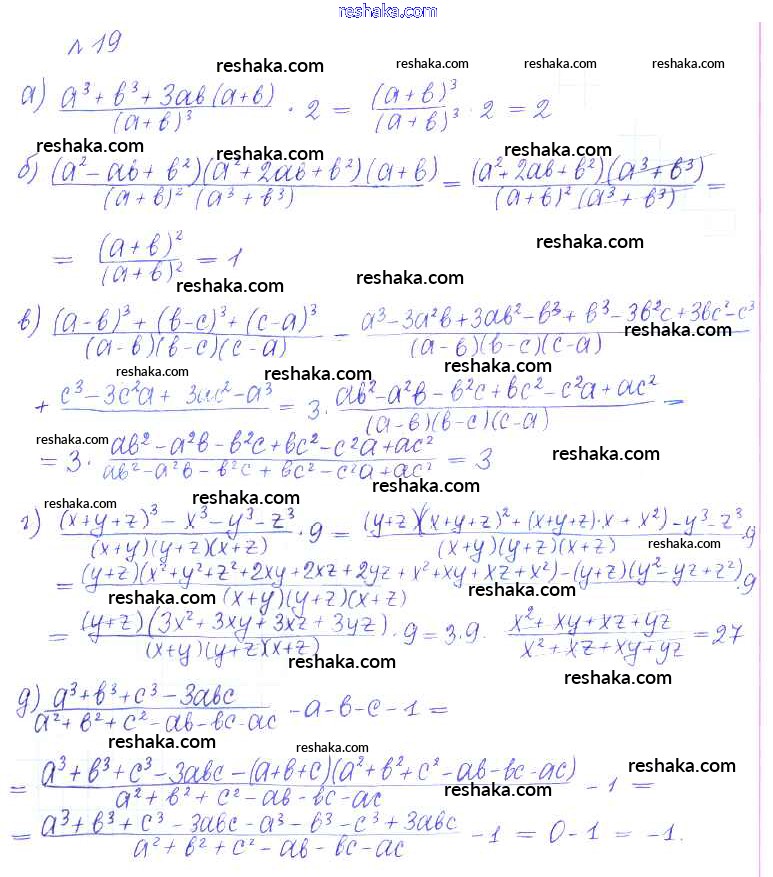 reshaka.com
№19
reshaka.com reshaka.com reshaka.com
а) (a³ + b³ + 3ab(a+b))/(a+b)³ · 2 = (a+b)³/(a+b)³ · 2 = 2
reshaka.com reshaka.com reshaka.com
б) (a² - ab + b²)(a² + 2ab + b²)(a+b)/((a+b)²(a³+b³)) = (a²+2ab+b²)(a³+b³)/((a+b)²(a³+b³)) =
= (a+b)²/(a+b)² = 1
reshaka.com
reshaka.com reshaka.com
в) ((a-b)³ + (b-c)³ + (c-a)³)/((a-b)(b-c)(c-a)) = (a³ - 3a²b + 3ab² - b³ + b³ - 3b²c + 3bc² - c³)/((a-b)(b-c)(c-a))
reshaka.com
reshaka.com reshaka.com reshaka.com
+ (c³ - 3c²a + 3ac² - a³) = 3 · (ab² - a²b - b²c + bc² - c²a + ac²)/((a-b)(b-c)(c-a)) =
reshaka.com reshaka.com reshaka.com
= 3 · (ab² - a²b - b²c + bc² - c²a + ac²)/(ab² - a²b - b²c + bc² - c²a + ac²) = 3
reshaka.com reshaka.com reshaka.com
г) ((x+y+z)³ - x³ - y³ - z³)/((x+y)(y+z)(x+z)) · 9 = ((y+z)((x+y+z)² + (x+y+z)·x + x²) - y³ - z³)/((x+y)(y+z)(x+z)) · 9
reshaka.com
= ((y+z)(x²+y²+z²+2xy+2xz+2yz + x²+xy+xz+x²) - (y+z)(y²-yz+z²))/((x+y)(y+z)(x+z)) · 9
reshaka.com reshaka.com reshaka.com
= (y+z)(3x²+3xy+3xz+3yz)/((x+y)(y+z)(x+z)) · 9 = 3·9 · (x²+xy+xz+yz)/(x²+xz+xy+yz) = 27
reshaka.com reshaka.com
д) (a³+b³+c³-3abc)/(a²+b²+c²-ab-bc-ac) - a - b - c - 1 =
reshaka.com reshaka.com
= (a³+b³+c³-3abc-(a+b+c)(a²+b²+c²-ab-bc-ac))/(a²+b²+c²-ab-bc-ac) - 1 =
reshaka.com reshaka.com reshaka.com
= (a³+b³+c³-3abc-a³-b³-c³+3abc)/(a²+b²+c²-ab-bc-ac) - 1 = 0-1 = -1.